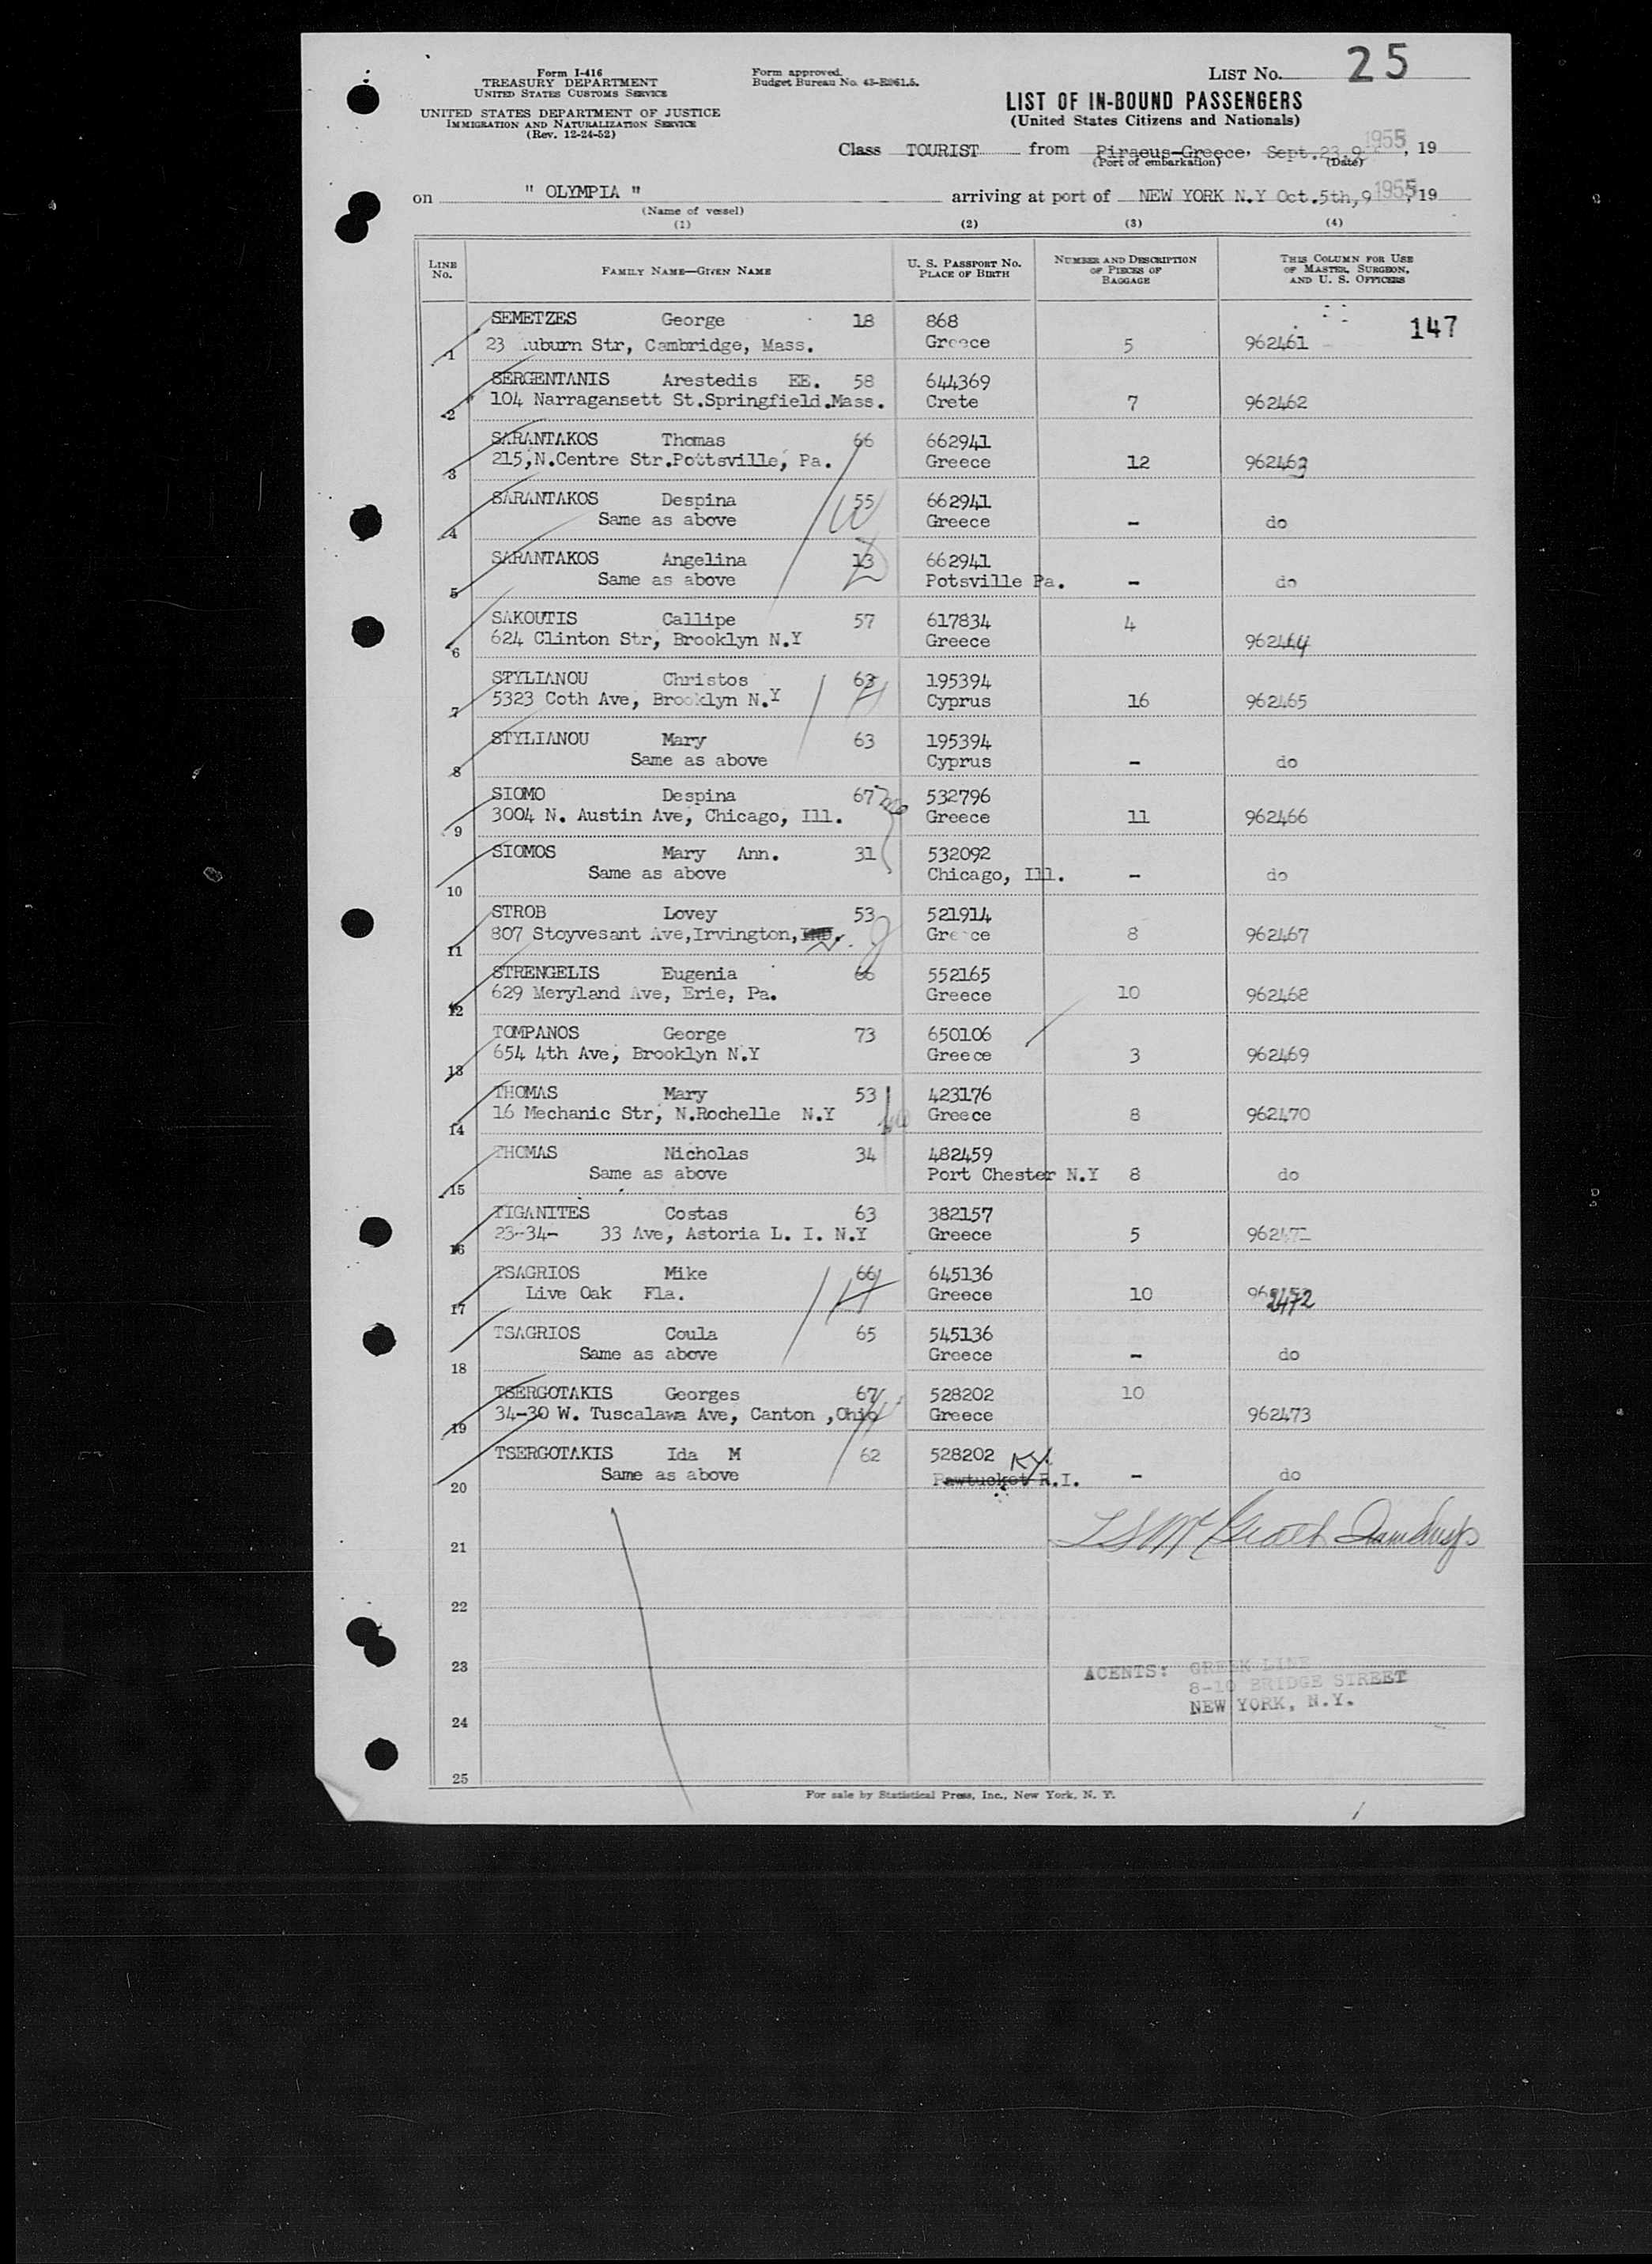 Form I-416
TREASURY DEPARTMENT
UNITED STATES CUSTOMS SERVICE
UNITED STATES DEPARTMENT OF JUSTICE
IMMIGRATION AND NATURALIZATION SERVICE
(Rev. 12-24-52)
Form approved.
Budget Bureau No.
LIST NO. 25
LIST OF IN-BOUND PASSENGERS
(United States Citizens and Nationals)
Class TOURIST from Piraeus-Greece, Sept. 23, 9 1955, 19
(Port of embarkation) (Date)
on " OLYMPIA " arriving at port of NEW YORK N.Y Oct.5th,9 1955, 19
(Name of vessel)
(1) (2) (3) (4)
LINE No. FAMILY NAME—GIVEN NAME U. S. PASSPORT NO. PLACE OF BIRTH NUMBER AND DESCRIPTION OF PIECES OF BAGGAGE THIS COLUMN FOR USE OF MASTER, SURGEON, AND U. S. OFFICERS
147
1 SEMETZES George 18 868
23 uburn Str, Cambridge, Mass. Greece 5 962461
2 SERGENTANIS Arestedis EE. 58 644369
104 Narragansett St.Springfield.Mass. Crete 7 962462
3 SARANTAKOS Thomas 66 662941
215,N.Centre Str.Pottsville, Pa. Greece 12 962463
4 SARANTAKOS Despina 55 662941
Same as above Greece - do
5 SARANTAKOS Angelina 13 662941
Same as above Potsville Pa. - do
6 SAKOUTIS Callipe 57 617834 4
624 Clinton Str, Brooklyn N.Y Greece 962464
7 STYLIANOU Christos 63 195394
5323 Coth Ave, Brooklyn N.Y Cyprus 16 962465
8 STYLIANOU Mary 63 195394
Same as above Cyprus - do
9 SIOMO Despina 67 532796
3004 N. Austin Ave, Chicago, Ill. Greece 11 962466
10 SIOMOS Mary Ann. 31 532092
Same as above Chicago, Ill. - do
11 STROB Lovey 53 521914
807 Stoyvesant Ave,Irvington, Greece 8 962467
12 STRENGELIS Eugenia 66 552165
629 Meryland Ave, Erie, Pa. Greece 10 962468
13 TOMPANOS George 73 650106
654 4th Ave, Brooklyn N.Y Greece 3 962469
14 THOMAS Mary 53 423176
16 Mechanic Str, N.Rochelle N.Y Greece 8 962470
15 THOMAS Nicholas 34 482459
Same as above Port Chester N.Y 8 do
16 TIGANITES Costas 63 382157
23-34- 33 Ave, Astoria L. I. N.Y Greece 5
17 TSAGRIOS Mike 66 645136
Live Oak Fla. Greece 10 2472
18 TSAGRIOS Coula 65 545136
Same as above Greece - do
19 TSERGOTAKIS Georges 67 528202 10
34-30 W. Tuscalawa Ave, Canton ,Ohio Greece 962473
20 TSERGOTAKIS Ida M 62 528202 KY.
Same as above Pawtucket R.I. - do
21
22
23
AGENTS: GREEK LINE
8-10 BRIDGE STREET
NEW YORK, N.Y.
24
25
For sale by Statistical Press, Inc., New York, N. Y.